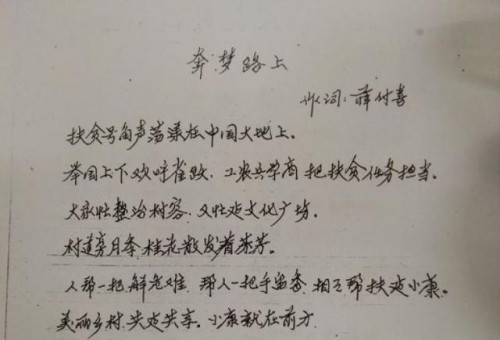 奔梦路上
作词:薛付喜
扶贫号角声荡漾在中国大地上。
举国上下欢呼雀跃、工农兵学商把扶贫任务担当。
大家忙整治村容、又忙建文化广场。
村道旁月季、桂花散发着芬芳。
人帮一把解危难、帮人一把手留香、相互帮扶建小康。
美丽乡村共建共享。小康就在前方